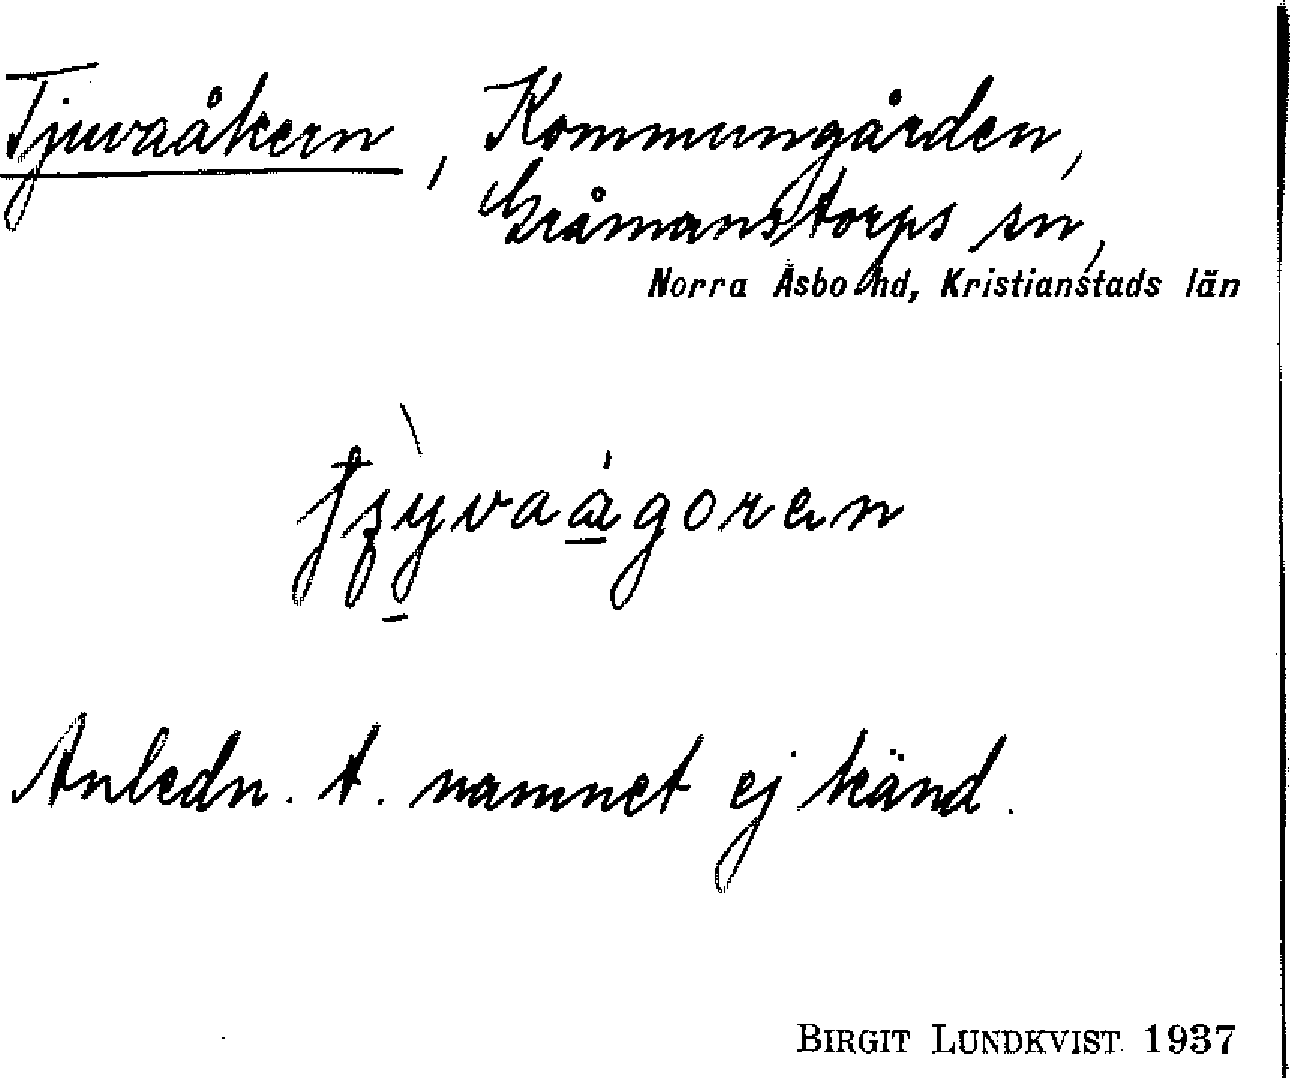 Tjuvaåkern, Kommungården,
Gråmanstorps sn,
Norra Åsbo hd, Kristianstads län
Anledn. t. namnet ej känd.
BIRGIT LUNDKVIST 1937